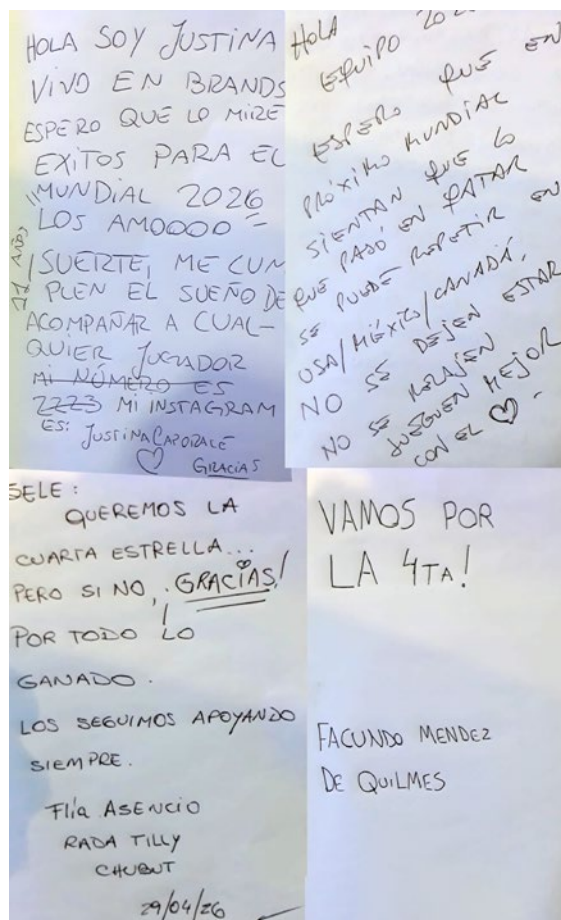 HOLA SOY JUSTINA
VIVO EN BRANDS
ESPERO QUE LO MIRE
EXITOS PARA EL
"MUNDIAL 2026
LOS AMOOOO"
11 AÑOS
¡SUERTE, ME CUN
PLEN EL SUEÑO DE
ACOMPAÑAR A CUAL-
QUIER JUGADOR
MI NÚMERO ES
2223 MI INSTAGRAM
ES: JUSTINACAPORALE
GRACIAS
HOLA
EQUIPO 202
ESPERO QUE EN
PRÓXIMO MUNDIAL
SIENTAN QUE LO
QUE PASÓ EN QATAR
SE PUEDE REPETIR EN
USA/MÉXICO/CANADÁ,
NO SE DEJEN ESTAR
NO SE RELAJEN
JUEGUEN MEJOR
CON EL ♡ -
SELE:
QUEREMOS LA
CUARTA ESTRELLA...
PERO SI NO, ¡GRACIAS!
POR TODO LO
GANADO.
LOS SEGUIMOS APOYANDO
SIEMPRE.
Flía ASENCIO
RADA TILLY
CHUBUT
29/04/26
VAMOS POR
LA 4TA!
FACUNDO MENDEZ
DE QUILMES